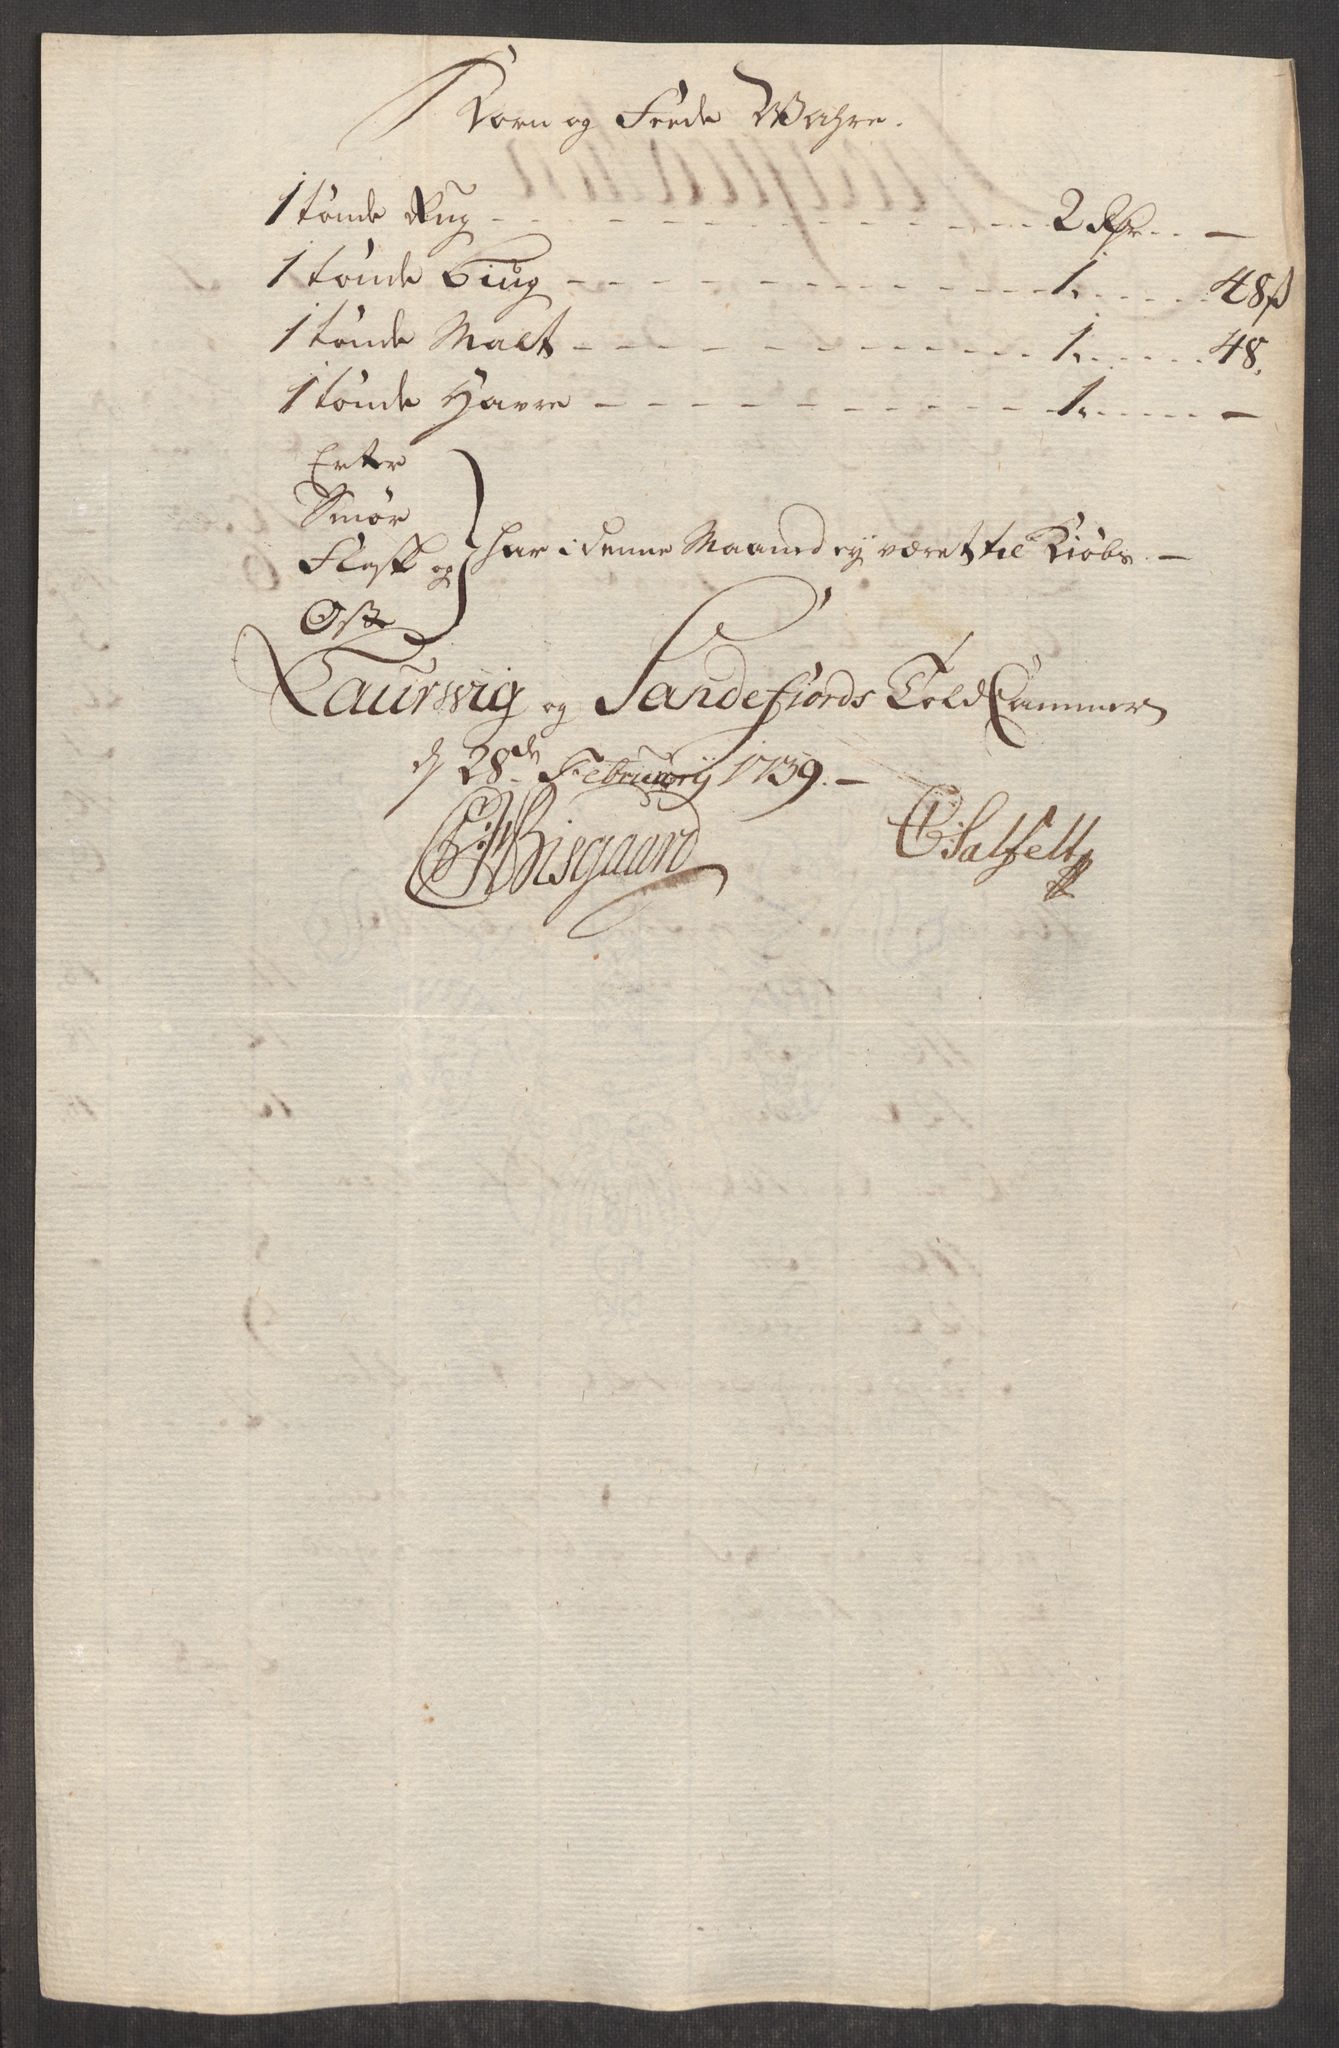 Korn og Feede Wahre.
1 tønde Rug - - - 2 Rdr. -
1 tønde Biug - - - 1. - - - 48 ß
1 tønde Malt - - - 1. - - - 48.
1 tønde Havre - - - 1. - - - -
Erter
Smør
Flesk og
Oste
har i denne Maaned ey været til Kiøbs. -
Laurwig og Sandefiords Told Cammer
d 28de Februarij 1739. -
Bisgaard
C Salfelt